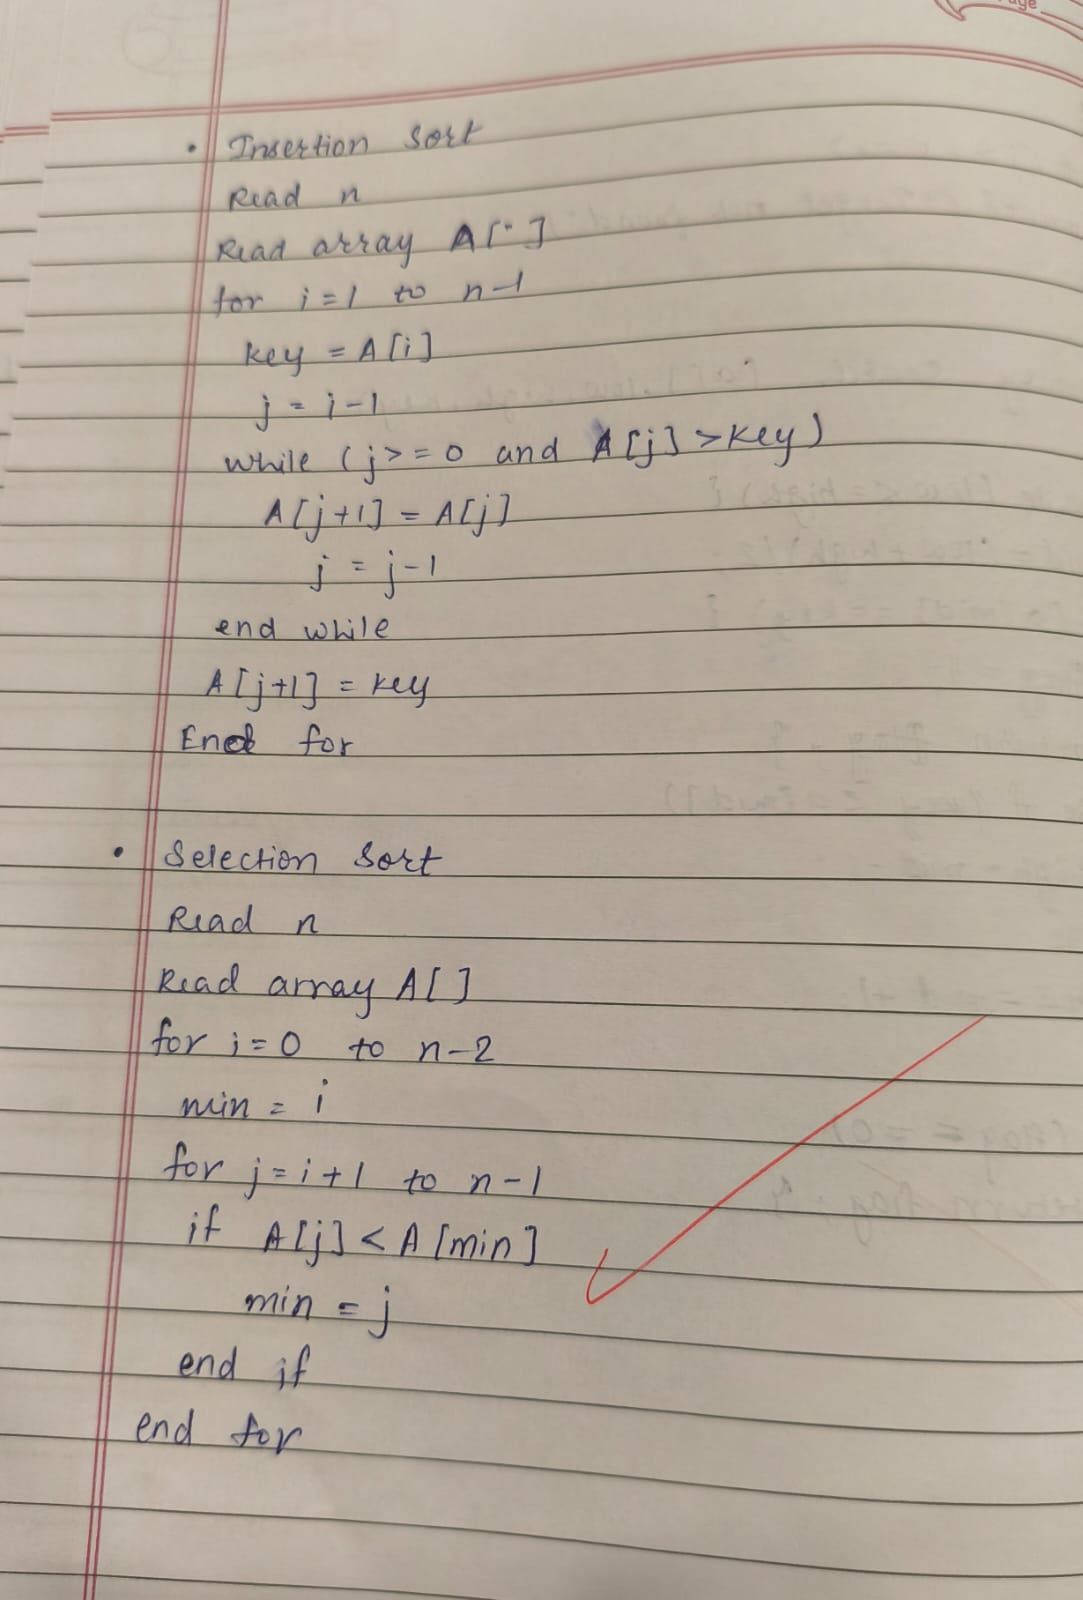 • Insertion Sort
Read n
Read array A[]
for i=1 to n-1
key = A[i]
j = i-1
while (j>=0 and A[j]>key)
A[j+1] = A[j]
j = j-1
end while
A[j+1] = key
End for
• Selection Sort
Read n
Read array A[]
for i=0 to n-2
min = i
for j=i+1 to n-1
if A[j]<A[min]
min = j
end if
end for